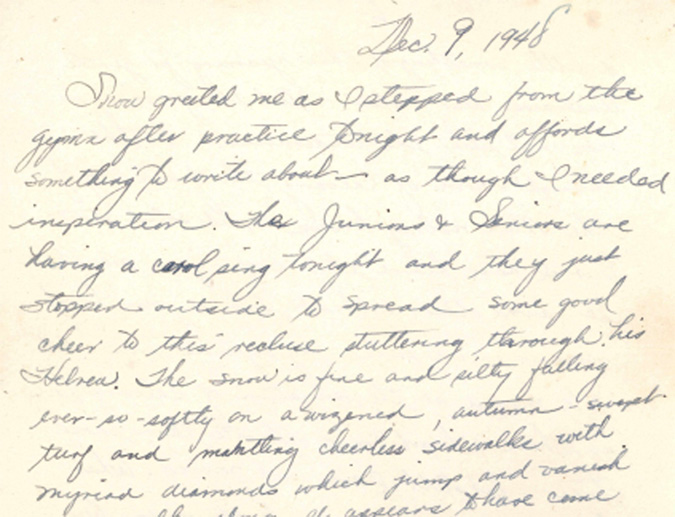 Dec. 9, 1948
Snow greeted me as I stepped from the
gym after practice tonight and affords
something to write about — as though I needed
inspiration. The Juniors & Seniors are
having a carol sing tonight and they just
stopped outside to spread some good
cheer to this recluse stuttering through his
Hebrew. The snow is fine and silty falling
ever-so-softly on a wizened, autumn-swept
turf and mantling cheerless sidewalks with
myriad diamonds which jump and vanish
appears to have come